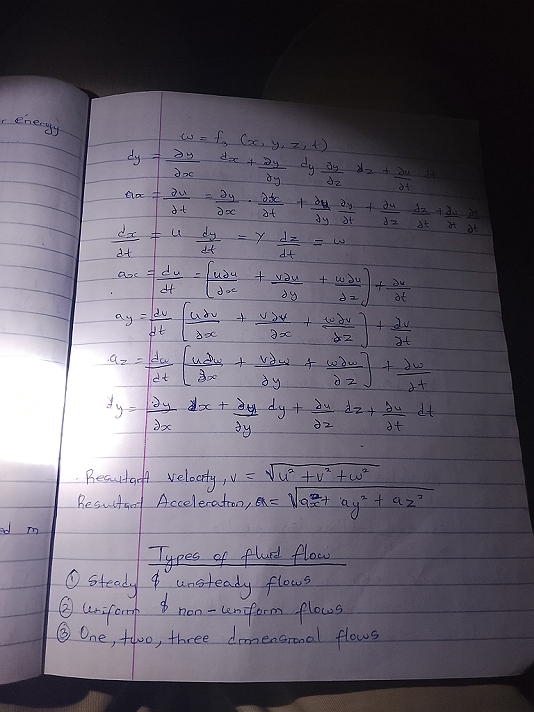 r energy
w = f₃ (x, y, z, t)
dy = ∂y/∂x dx + ∂y/∂y dy ∂y/∂z dz + ∂u/∂t dt
ax = ∂u/∂t = ∂y/∂x · ∂x/∂t + ∂y/∂y ∂y/∂t + ∂u/∂z dz/∂t + ∂u/∂t
dx/dt = u dy/dt = Y dz/dt = w
ax = du/dt = [u∂u/∂x + v∂u/∂y + w∂u/∂z] + ∂u/∂t
ay = dv/dt [u∂v/∂x + v∂v/∂x + w∂v/∂z] + ∂v/∂t
az = dw/dt [u∂w/∂x + v∂w/∂y + w∂w/∂z] + ∂w/∂t
dy = ∂y/∂x dx + ∂y/∂y dy + ∂u/∂z dz + ∂u/∂t dt
Resultant velocity, v = √u² + v² + w²
Resultant Acceleration, a = √ax² + ay² + az²
ed in
Types of fluid flow
① Steady & unsteady flows
② uniform & non-uniform flows
③ One, two, three dimensional flows